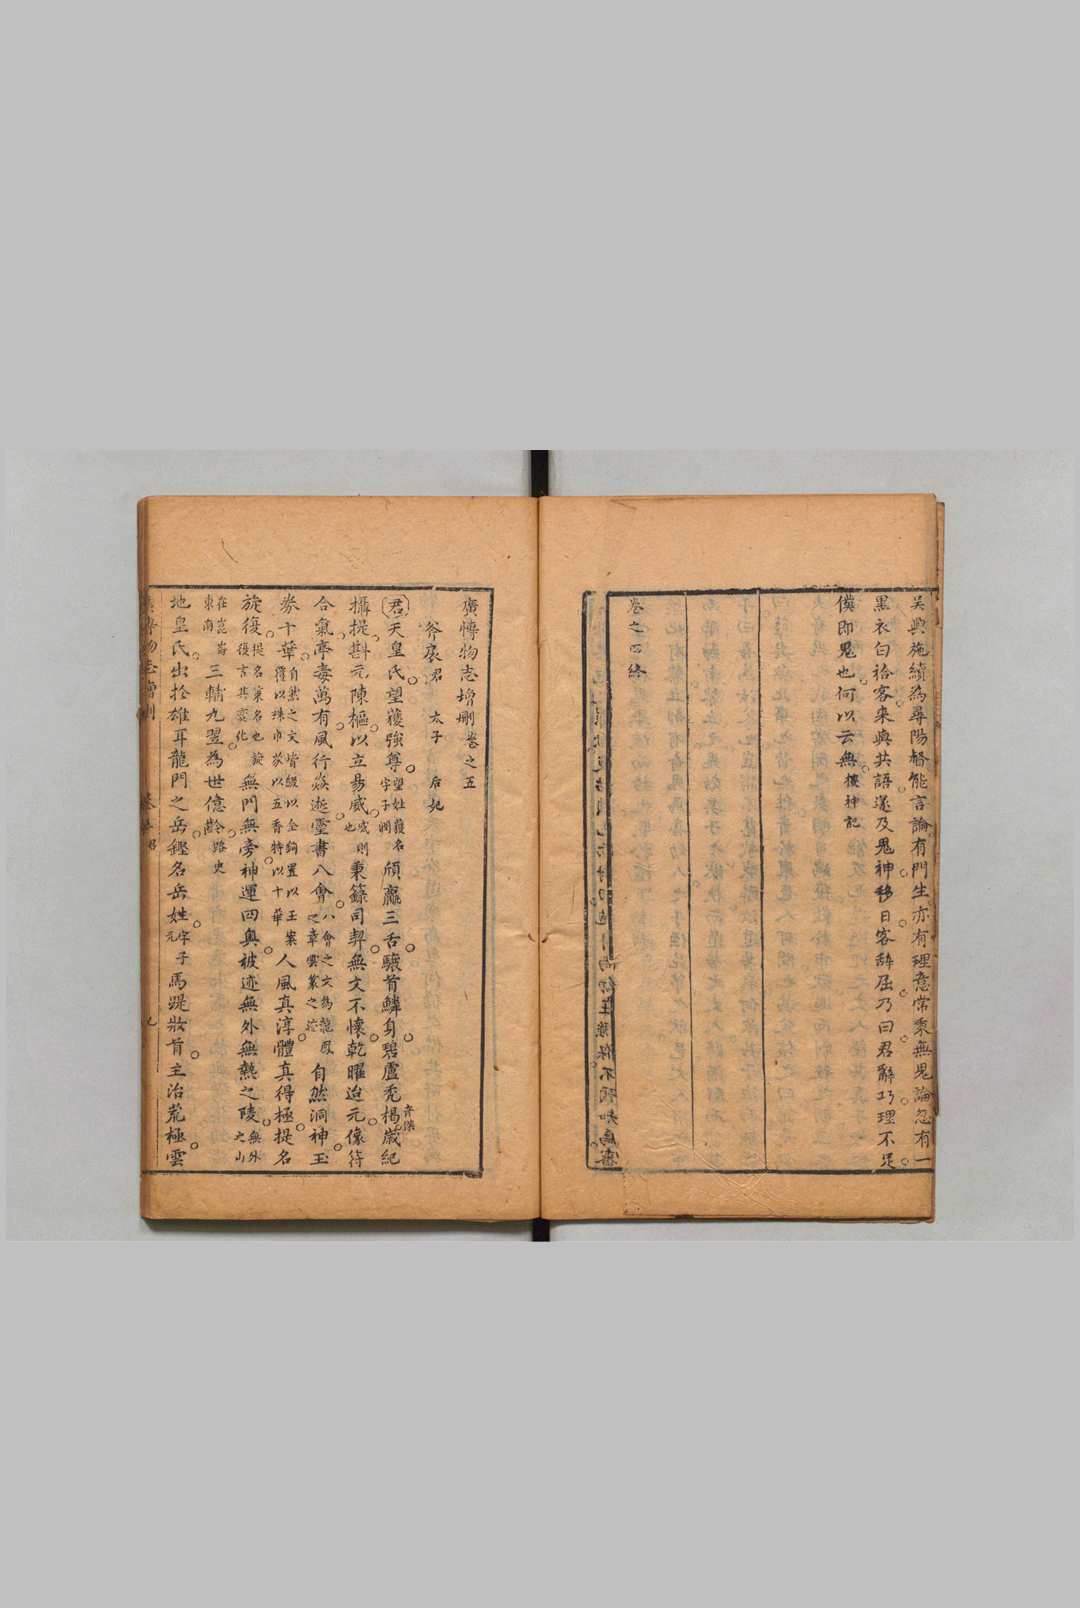 吴興施續為尋陽督能言論有門生亦有理意常乘無鬼論忽有一
黑衣白袷客来與共語遂及鬼神移日客辞屈乃曰君辭巧理不足
僕即鬼也何以云無搜神記
卷之四終
廣博物志增刪卷之五
斧扆君 太子 后妃
君天皇氏望獲強尊望姓獲名字子潤頎羸三舌驤首鱗身碧盧秃楬歲紀
攝提斟元陳樞以立易威威則也秉籙司契無文不懷乾曜迨元像符
合氣亭毒萬有風行焱逝靈書八會八會之文為龍鳳之章雲篆之迹自然洞神玉
券十華自然之文皆級以金鉤置以玉案覆以珠巾炭以五香特以十華人風真淳體真得極提名
旋復提名策名也旋復言其變化無門無旁神運四奥被迹無外無熱之陵無外之山
在崑崙東南三輔九翌為世億齡路史
地皇氏出於雄耳龍門之岳鏗名岳姓字子元馬踶妝首主治荒極雲